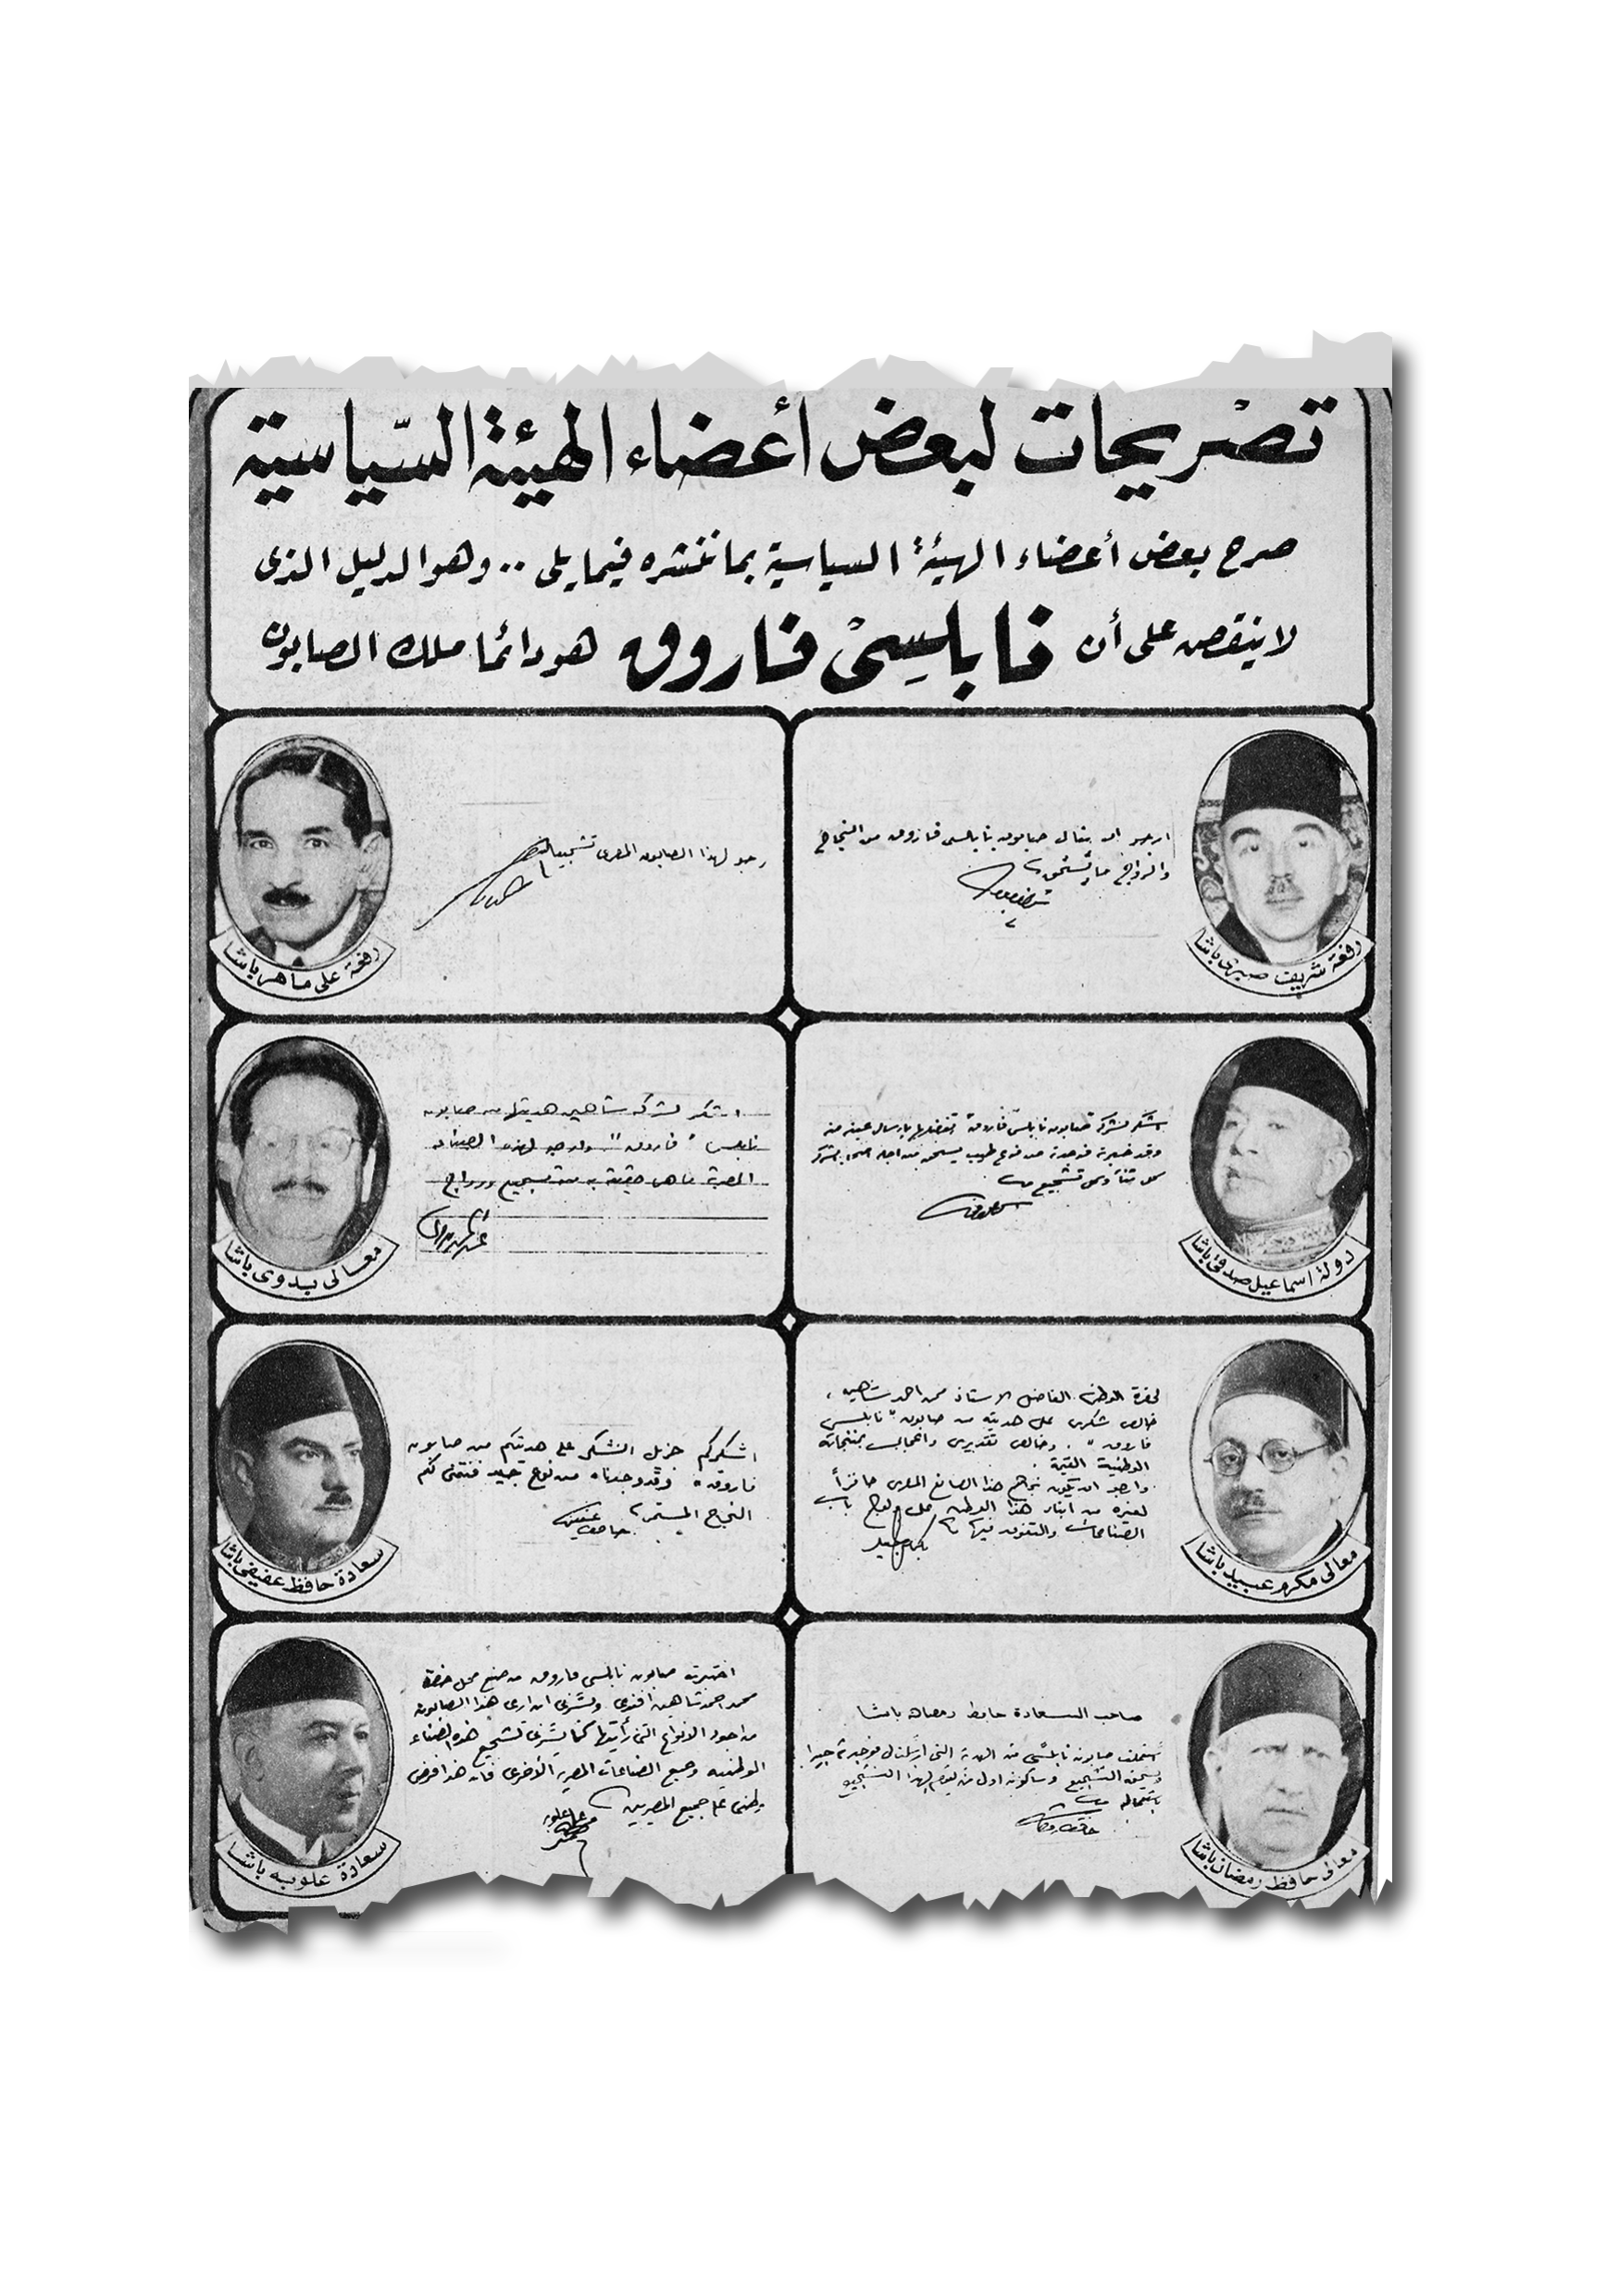 تصريحات لبعض أعضاء الهيئة السياسية
صرح بعض أعضاء الهيئة السياسية بما ننشره فيما يلى .. وهو الدليل الذى
لا ينقص على أن نابلسى فاروق هو دائما ملك الصابون
ارجو ان ينال صابون نابلسى فاروق من النجاح
والرواج ما يستحق
رفعة شريف صبرى باشا
رجو لهذا الصابون المصرى تشجيعا
رفعة على ماهر باشا
اشكر لشركة صابون نابلسى فاروق تفضلهم بارسال عينه منه
وقد فوجدته من نوع طيب يستحق من اجله
كل ثناء وكل تشجيع
دولة اسماعيل صدقى باشا
اشكر لشركة شاهين هديتها من صابون
نابلسى " فاروق " وارجو لهذه الصناعة
المصرية ما هى حقيقة به من تشجيع ورواج
معالى بدوى باشا
لحضرة الوطنى الفاضل الاستاذ محمد احمد شاهين ،
خالص شكرى على هديته من صابون " نابلسى
فاروق " . وخالص تقديرى واعجابى بمنتجاته
الوطنية القيمة .
وارجو ان يكون نجاح هذا الصانع المصرى حافزاً
لغيره من ابناء هذا الوطن على ولوج باب
الصناعات والتفوق فيها
معالى مكرم عبيد باشا
اشكركم جزيل الشكر على هديتكم من صابون
فاروق وقد وجدناه من نوع جيد فنتمنى لكم
النجاح المستمر
حافظ عفيفى
سعادة حافظ عفيفى باشا
صاحب السعادة حافظ رمضان باشا
استعملت صابون نابلسى من الهدية التى ارسلت لى فوجدته جيدا
ويستحق التشجيع وساكون اول من يقوم بهذا التشجيع
باستعماله
حافظ رمضان
معالى حافظ رمضان باشا
اختبرت صابون نابلسى فاروق من صنع محل حضرة
محمد احمد شاهين افندى ويسرنى ان ارى هذا الصابون
من اجود الانواع التى رأيتها كما يسرنى تشجيع هذه الصناعه
الوطنيه وجميع الصناعات المصريه الأخرى فان هذا فرض
وطنى على جميع المصريين
سعادة علوبه باشا